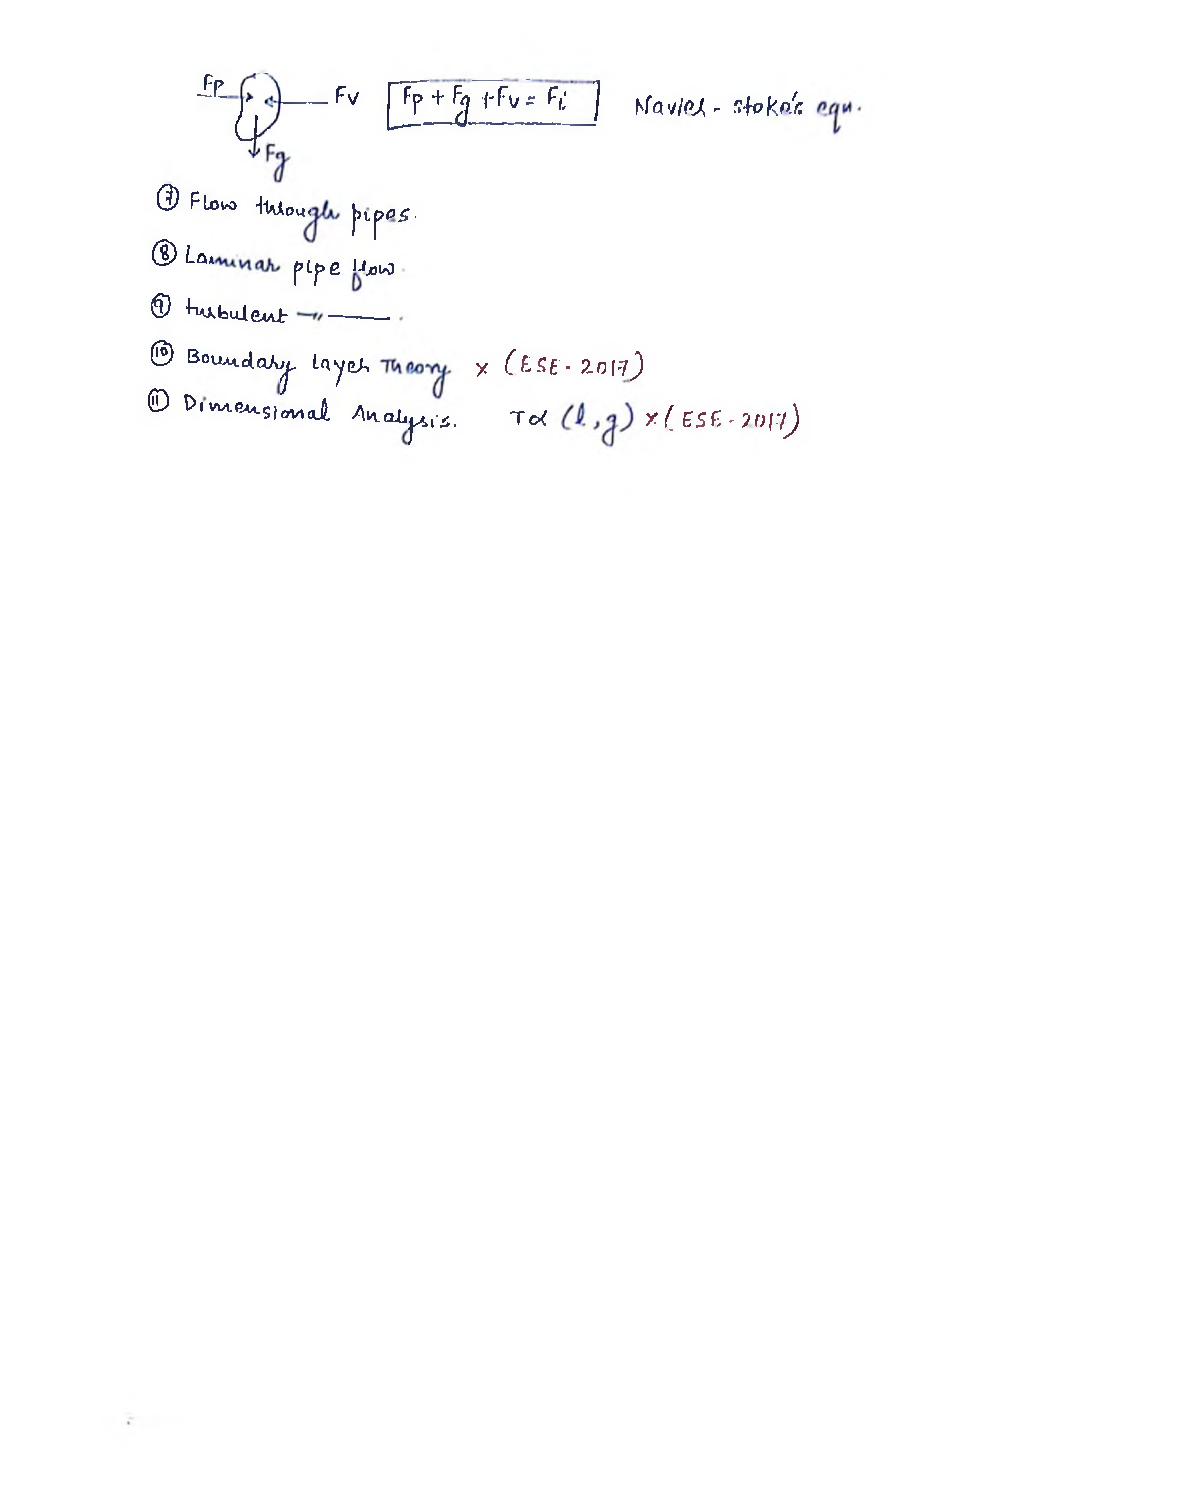 Fp Fv Fp + Fg + Fv = Fi Navier - stoke's equn.
Fg
⑦ Flow through pipes.
⑧ Laminar pipe flow.
⑨ turbulent —〃—— .
⑩ Boundary Layer Theory × (ESE - 2017)
⑪ Dimensional Analysis. T α (l, g) × (ESE - 2017)